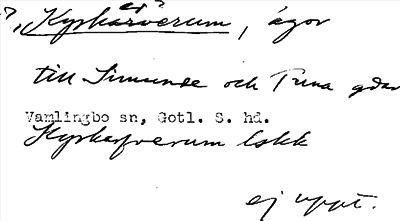 ?, Kyrkarverum, ägor
er?
till Simunde och Tuna gdar
Vamlingbo sn, Gotl. S. hd.
Kyrkarverum lskk
ej uppt.